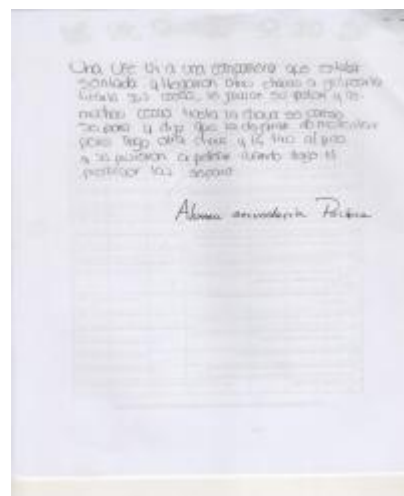 Una vez vi a una compañera que estaba
sentada y llegaron otras chavas a
sus cosas, le su pelon y
muchas cosas hasta la chava se
se paro y dijo que la dejaran de molestar
pero llego otra chava y la tiro al piso
y se pusieron a pelear cuando llego el
profesor las separo
Alumna secundaria Pública